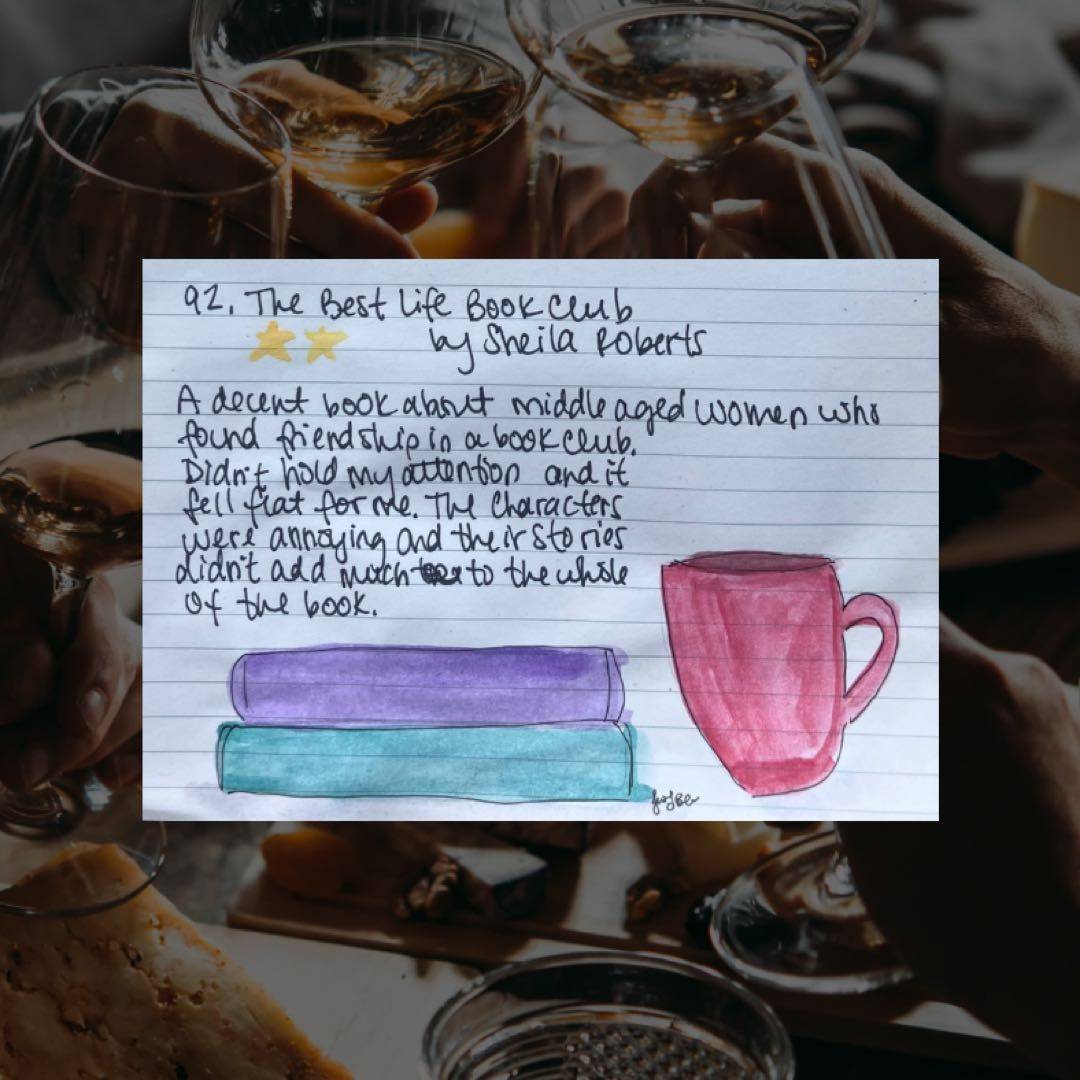 92. The Best Life Book Club
by Sheila Roberts
A decent book about middle aged women who
found friendship in a book club.
Didn't hold my attention and it
fell flat for me. The characters
were annoying and their stories
didn't add much to the whole
of the book.